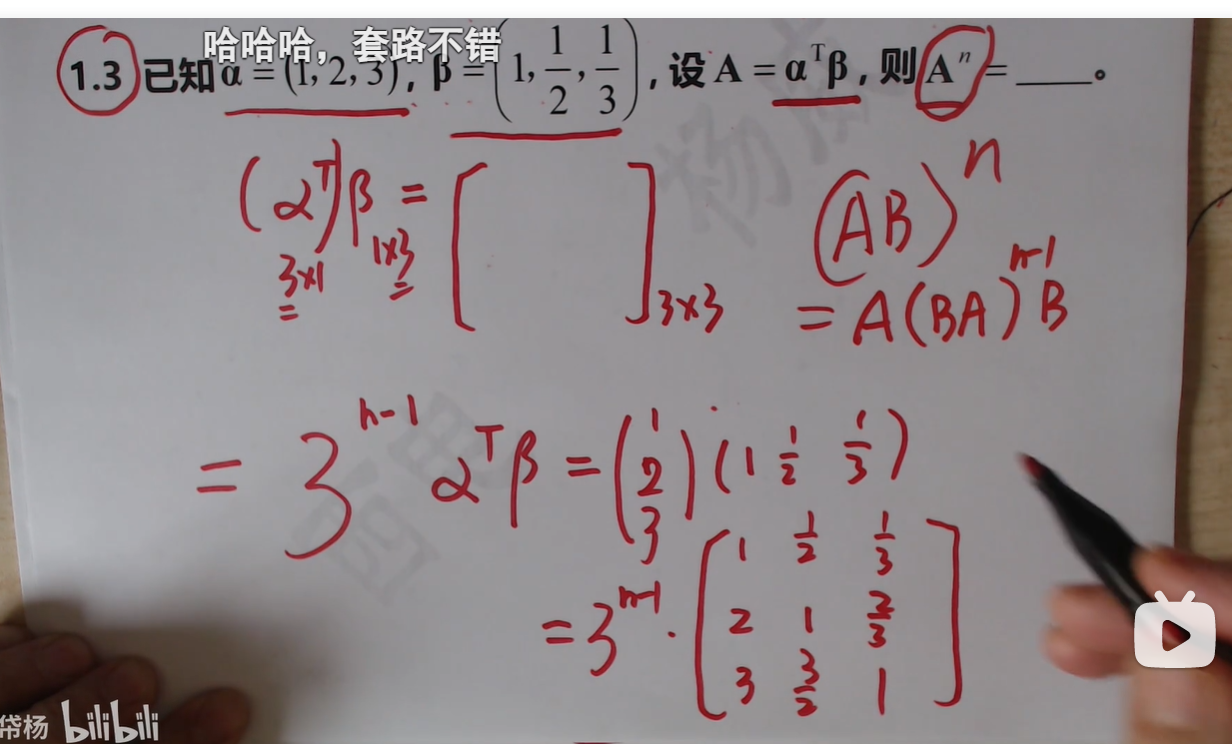 哈哈哈，套路不错
1.3 已知 α = (1, 2, 3), β = (1, 1/2, 1/3), 设 A = αᵀβ, 则 Aⁿ = ____。
(αᵀ)β = [ ]3×3
3×1 1×3
(AB)ⁿ
= A(BA)ⁿ⁻¹B
= 3ⁿ⁻¹ αᵀβ = (1 2 3) (1 1/2 1/3)
= 3ⁿ⁻¹ · [1 1/2 1/3
2 1 2/3
3 3/2 1]
帘杨 bilibili